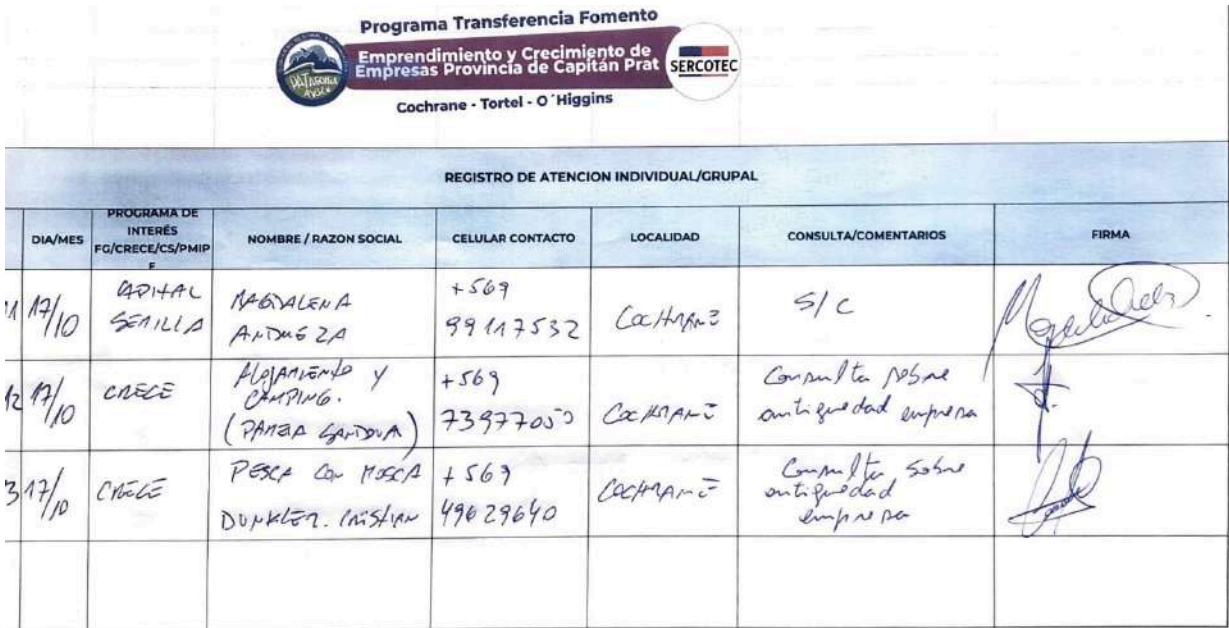 Programa Transferencia Fomento
Emprendimiento y Crecimiento de
Empresas Provincia de Capitán Prat
SERCOTEC
PATAGONIA
AYSÉN
Cochrane - Tortel - O´Higgins
REGISTRO DE ATENCION INDIVIDUAL/GRUPAL
DIA/MES
PROGRAMA DE
INTERÉS
FG/CRECE/CS/PMIP
F
NOMBRE / RAZON SOCIAL
CELULAR CONTACTO
LOCALIDAD
CONSULTA/COMENTARIOS
FIRMA
11 17/10
CAPITAL
SEMILLA
MAGDALENA
+569
99117532
COCHRANE
S/C
12 17/10
CRECE
ALOJAMIENTO Y
CAMPING.
(PAMELA SANDOVAL)
+569
COCHRANE
Consulta sobre
antiguedad empresa
3 17/10
CRECE
PESCA CON MOSCA
DUNKLER. CRISTIAN
+569
49629640
COCHRANE
Consulta sobre
antiguedad
empresa